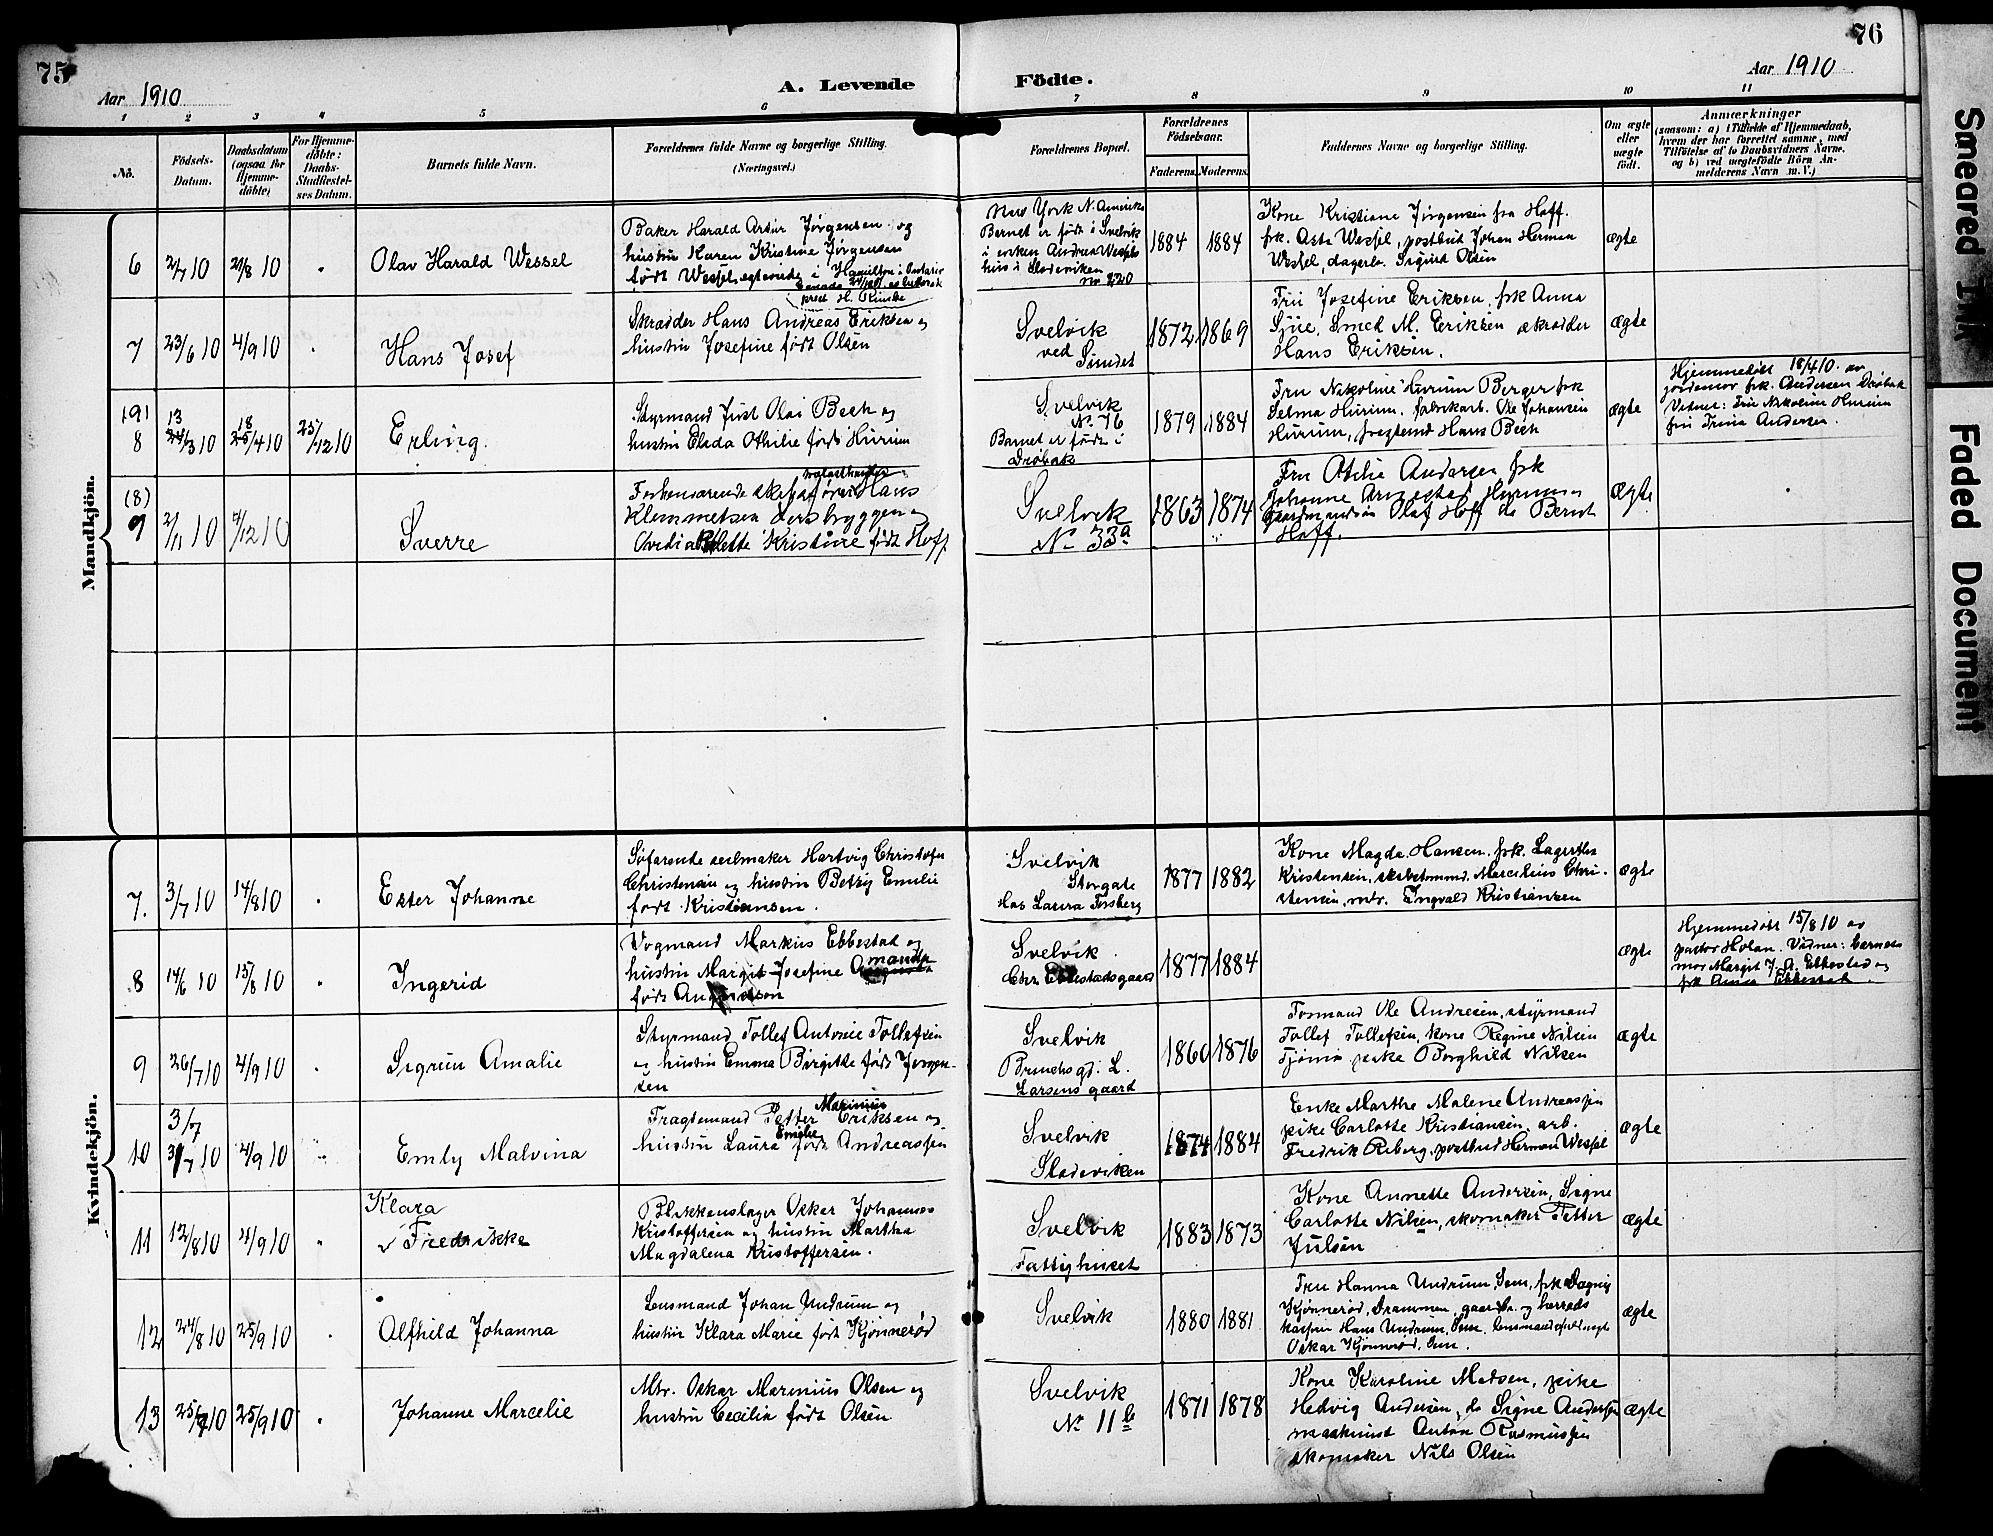 75
Aar 1910
A. Levende
Födte.
76
Aar 1910
1 2 3 4 5 6 7 8 9 10 11
No.
Födsels-
Datum.
Daabsdatum
(ogsaa for
Hjemme-
döbte)
For Hjemme-
döbte:
Daabs-
Stadfæstel-
ses Datum.
Barnets fulde Navn.
Forældrenes fulde Navne og borgerlige Stilling.
(Næringsvei.)
Forældrenes Bopæl.
Forældrenes
Födselsaar.
Faderens. Moderens.
Faddernes Navne og borgerlige Stilling.
Om ægte
eller
uægte
födt.
Anmærkninger
(saasom: a) i Tilfælde af Hjemmedaab,
hvem der har forrettet samme, med
Tilföielse af to Daabsvidners Navne,
og b) ved uægtefödte Börn An-
melderens Navn m. V.)
Mandkjön.
6
2/7 10
21/8 10
Olav Harald Wessel
Baker Harald Artur Jørgensen og
hustru Karen Kristine Jørgensen
født Wessel, egteviede i Hamilton i Ontario
New York N. Amerika
Barnet er født i Svelvik
i enken Andrea Wessels
hus i Sladeviken
no 220
1884 1884
Kone Kristiane Jørgensen fra Hoff.
frk. Asta Wessel, postbud Johan Herman
Wessel, dagarb. Sigurd Olsen
ægte
7
23/6 10
4/9 10
Hans Josef
Skrædder Hans Andreas Eriksen og
hustru Josefine født Olsen
Svelvik
ved
Sundet
1872 1869
Fru Josefine Eriksen, frk Anna
Sjue, Smed M. Eriksen skrædder
Hans Eriksen.
ægte
(9)
8
13
24/3 10
18
25/4 10
25/12 10
Erling.
Styrmand Just Olai Bech og
hustru Elida Othilie født Hurum
Svelvik
No. 76
Barnet er født i
Drøbak
1879 1884
Fru Nikoline Hurum Berger frk
Selma Hurum, fabrikarb. Ole Johansen
Hurum, fragtemd Hans Bech
ægte
Hjemmedøbt 18/4 10. av
jordemor frk. Andersen Drøbak
Vidner: Fru Nikoline Hurum
fru Trina Andersen.
(8)
9
2/11 10
4/12 10
Sverre
Forhenværende skibsfører Hans
Klemmetsen Dersbryggen og
Kristine født Hoff
Svelvik
No 33a
1863 1874
Fru Otilie Andersen frk
Johanne Hurum
gaardmandsøn Olaf Hoff do Bernt
Hoff.
ægte
Kvindekjön.
7.
3/7 10
14/8 10
Ester Johanne
Søfarende seilmaker Hartvig Christofer
Christensen og hustru Betzy Emilie
født Kristiansen.
Svelvik
Storgate
Hos Laura Tinsberg
1877 1882
Kone Magda Hansen. frk. Lagertha
Kristensen, skibstømmd. Marcelius Chri-
stensen, mtr. Ingvald Kristiansen
ægte
8
14/6 10
15/8 10
Ingerid
Vognmand Markus Ebbestad og
hustru Margit Josefine Amanda
født Anderson
Svelvik.
Chr. Ebbestadsgaard
1877 1884
ægte
Hjemmedøbt 15/8 10 av
pastor Holan. Vidner: barnets
mor Margit J. A. Ebbestad og
frk Anna Ebbestad.
9
26/7 10
4/9 10
Sigrun Amalie
Styrmand Tollef Antonie Tollefsen
og hustru Emma Birgitte født Jørgen-
sen
Svelvik
Bruchsgd: L.
Larsens gaard
1860 1876
Formand Ole Andresen, styrmand
Tollef Tollefsen, kone Regine Nilsen
Tjømø pike Borghild Nilsen
ægte
10
3/7
31/7 10
4/9 10
Emly Malvina
Fragtemand Petter Marinius Eriksen og
hustru Laura Emelie født Andreassen
Svelvik
Sladeviken
1874 1884
Enke Marthe Malene Andreassen
pike Carlotte Kristiansen, arb.
Fredrik Reberg, postbud Herman Wessel
ægte
11
12/8 10
4/9 10
Klara
Fredrikke
Blikkenslager Oskar Johannes
Kristoffersen og hustru Martha
Magdalena Kristoffersen.
Svelvik
Fattighuset
1883 1873
Kone Annette Andersen, Signe
Carlotte Nilsen, skomaker Petter
Julsen
ægte
12
24/8 10
25/9 10
Alfhild Johanna
Lensmand Johan Undrum og
hustru Klara Marie født Kjønnerød
Svelvik
1880 1881
Fru Hanna Undrum, Sem, frk Dagny
Kjønnerød, Drammen, gaardbr. og herreds
kasserer Hans Undrum, Sem. lensmandsfuldmægt
Oskar Kjønnerød, Sem.
ægte
13
25/7 10
25/9 10
Johanne Marcelie
Mtr. Oskar Marinius Olsen og
hustru Cecilia født Olsen
Svelvik
No 11b
1871 1878
Kone Karoline Madsen, pike
Hedvig Andersen, do Signe Andersen
maskinist Anton Rasmussen
skomaker Nils Olsen
ægte
Smeared Ink
Faded Document